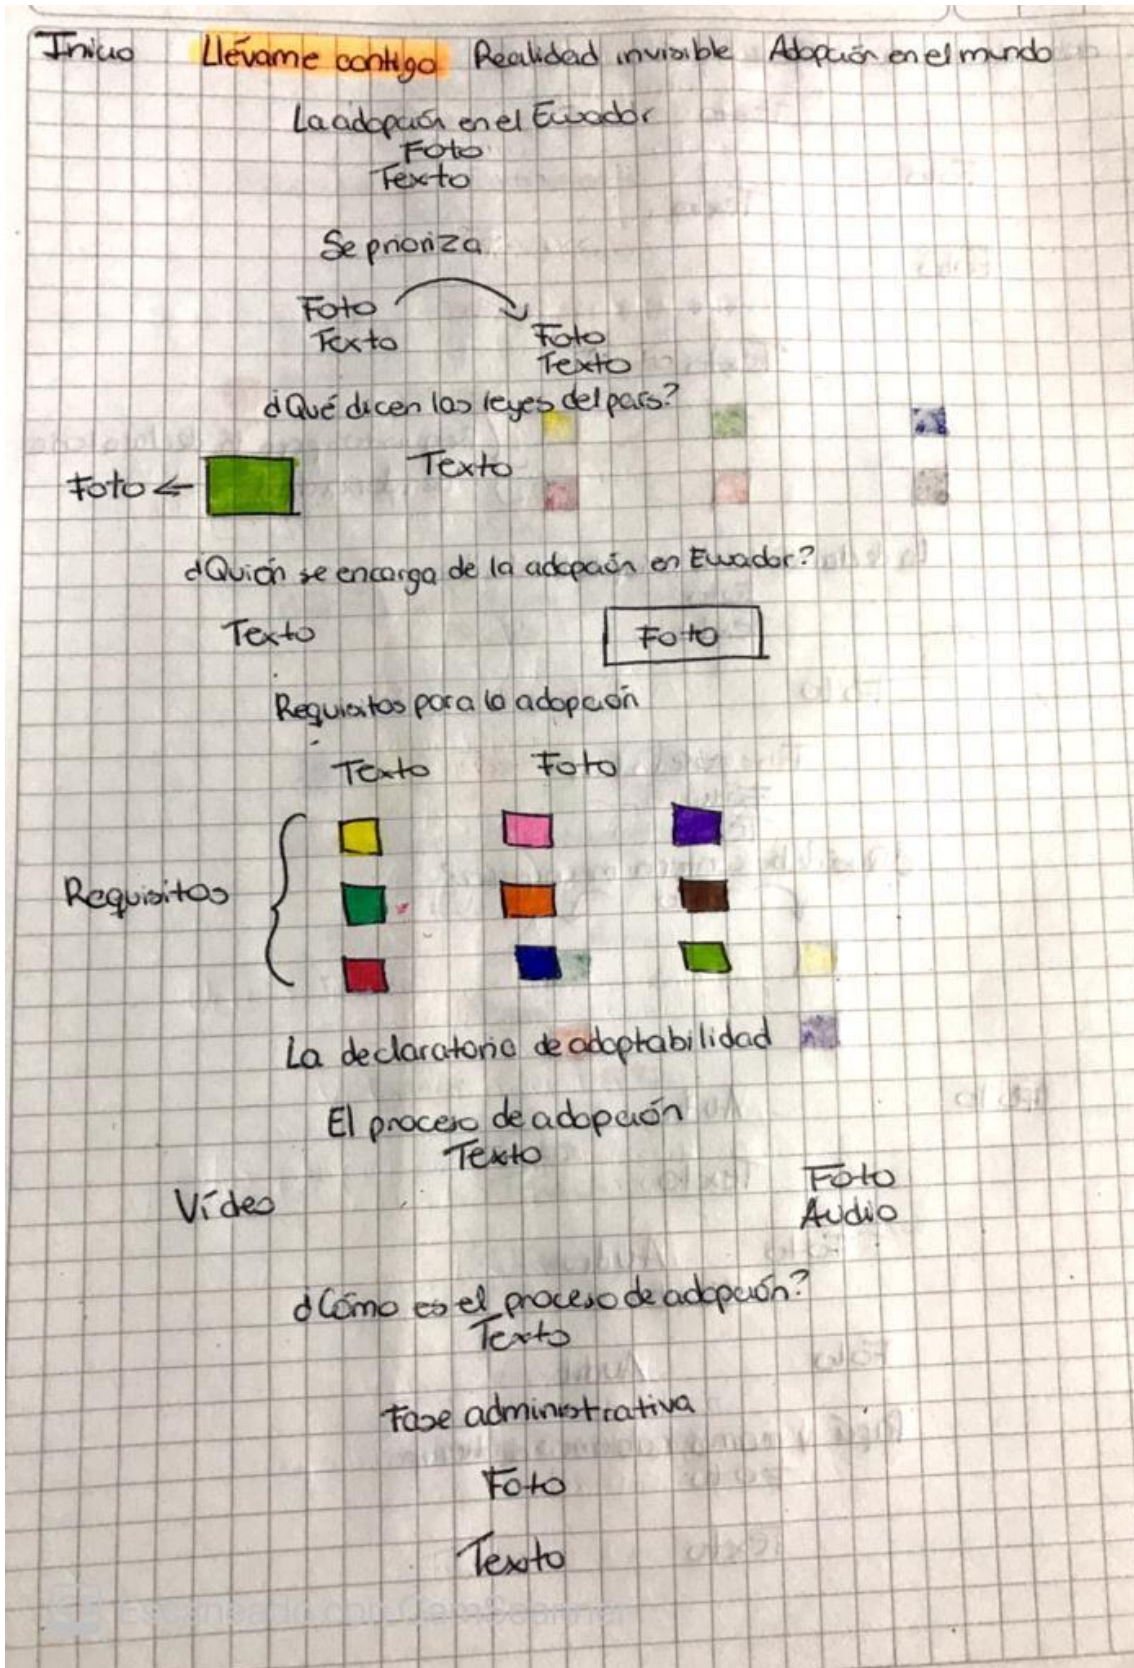 Inicio Llévame contigo Realidad invisible Adopción en el mundo
La adopción en el Ecuador
Foto
Texto
Se prioriza
Foto
Texto
Foto
Texto
¿Qué dicen las leyes del país?
Foto ← Texto
¿Quién se encarga de la adopción en Ecuador?
Texto Foto
Requisitos para la adopción
Texto Foto
Requisitos
La declaratoria de adoptabilidad
El proceso de adopción
Texto
Vídeo
Foto
Audio
¿Cómo es el proceso de adopción?
Texto
Fase administrativa
Foto
Texto
Escaneado con CamScanner